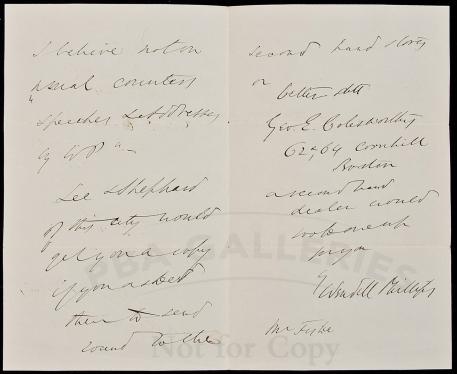 I believe not on
usual counters
"Speeches Lectures & Addresses
by W P"—
Lee & Shephard
of this city would
get you a copy
if you asked
them to send
round to the
second hand stores
or
better still
Geo. E. Colesworthy
62 & 64 Cornhill
Boston
a second hand
dealer would
look one up
for you
Wendell Phillips
Mr Fiske
PBA GALLERIES
Not for Copy